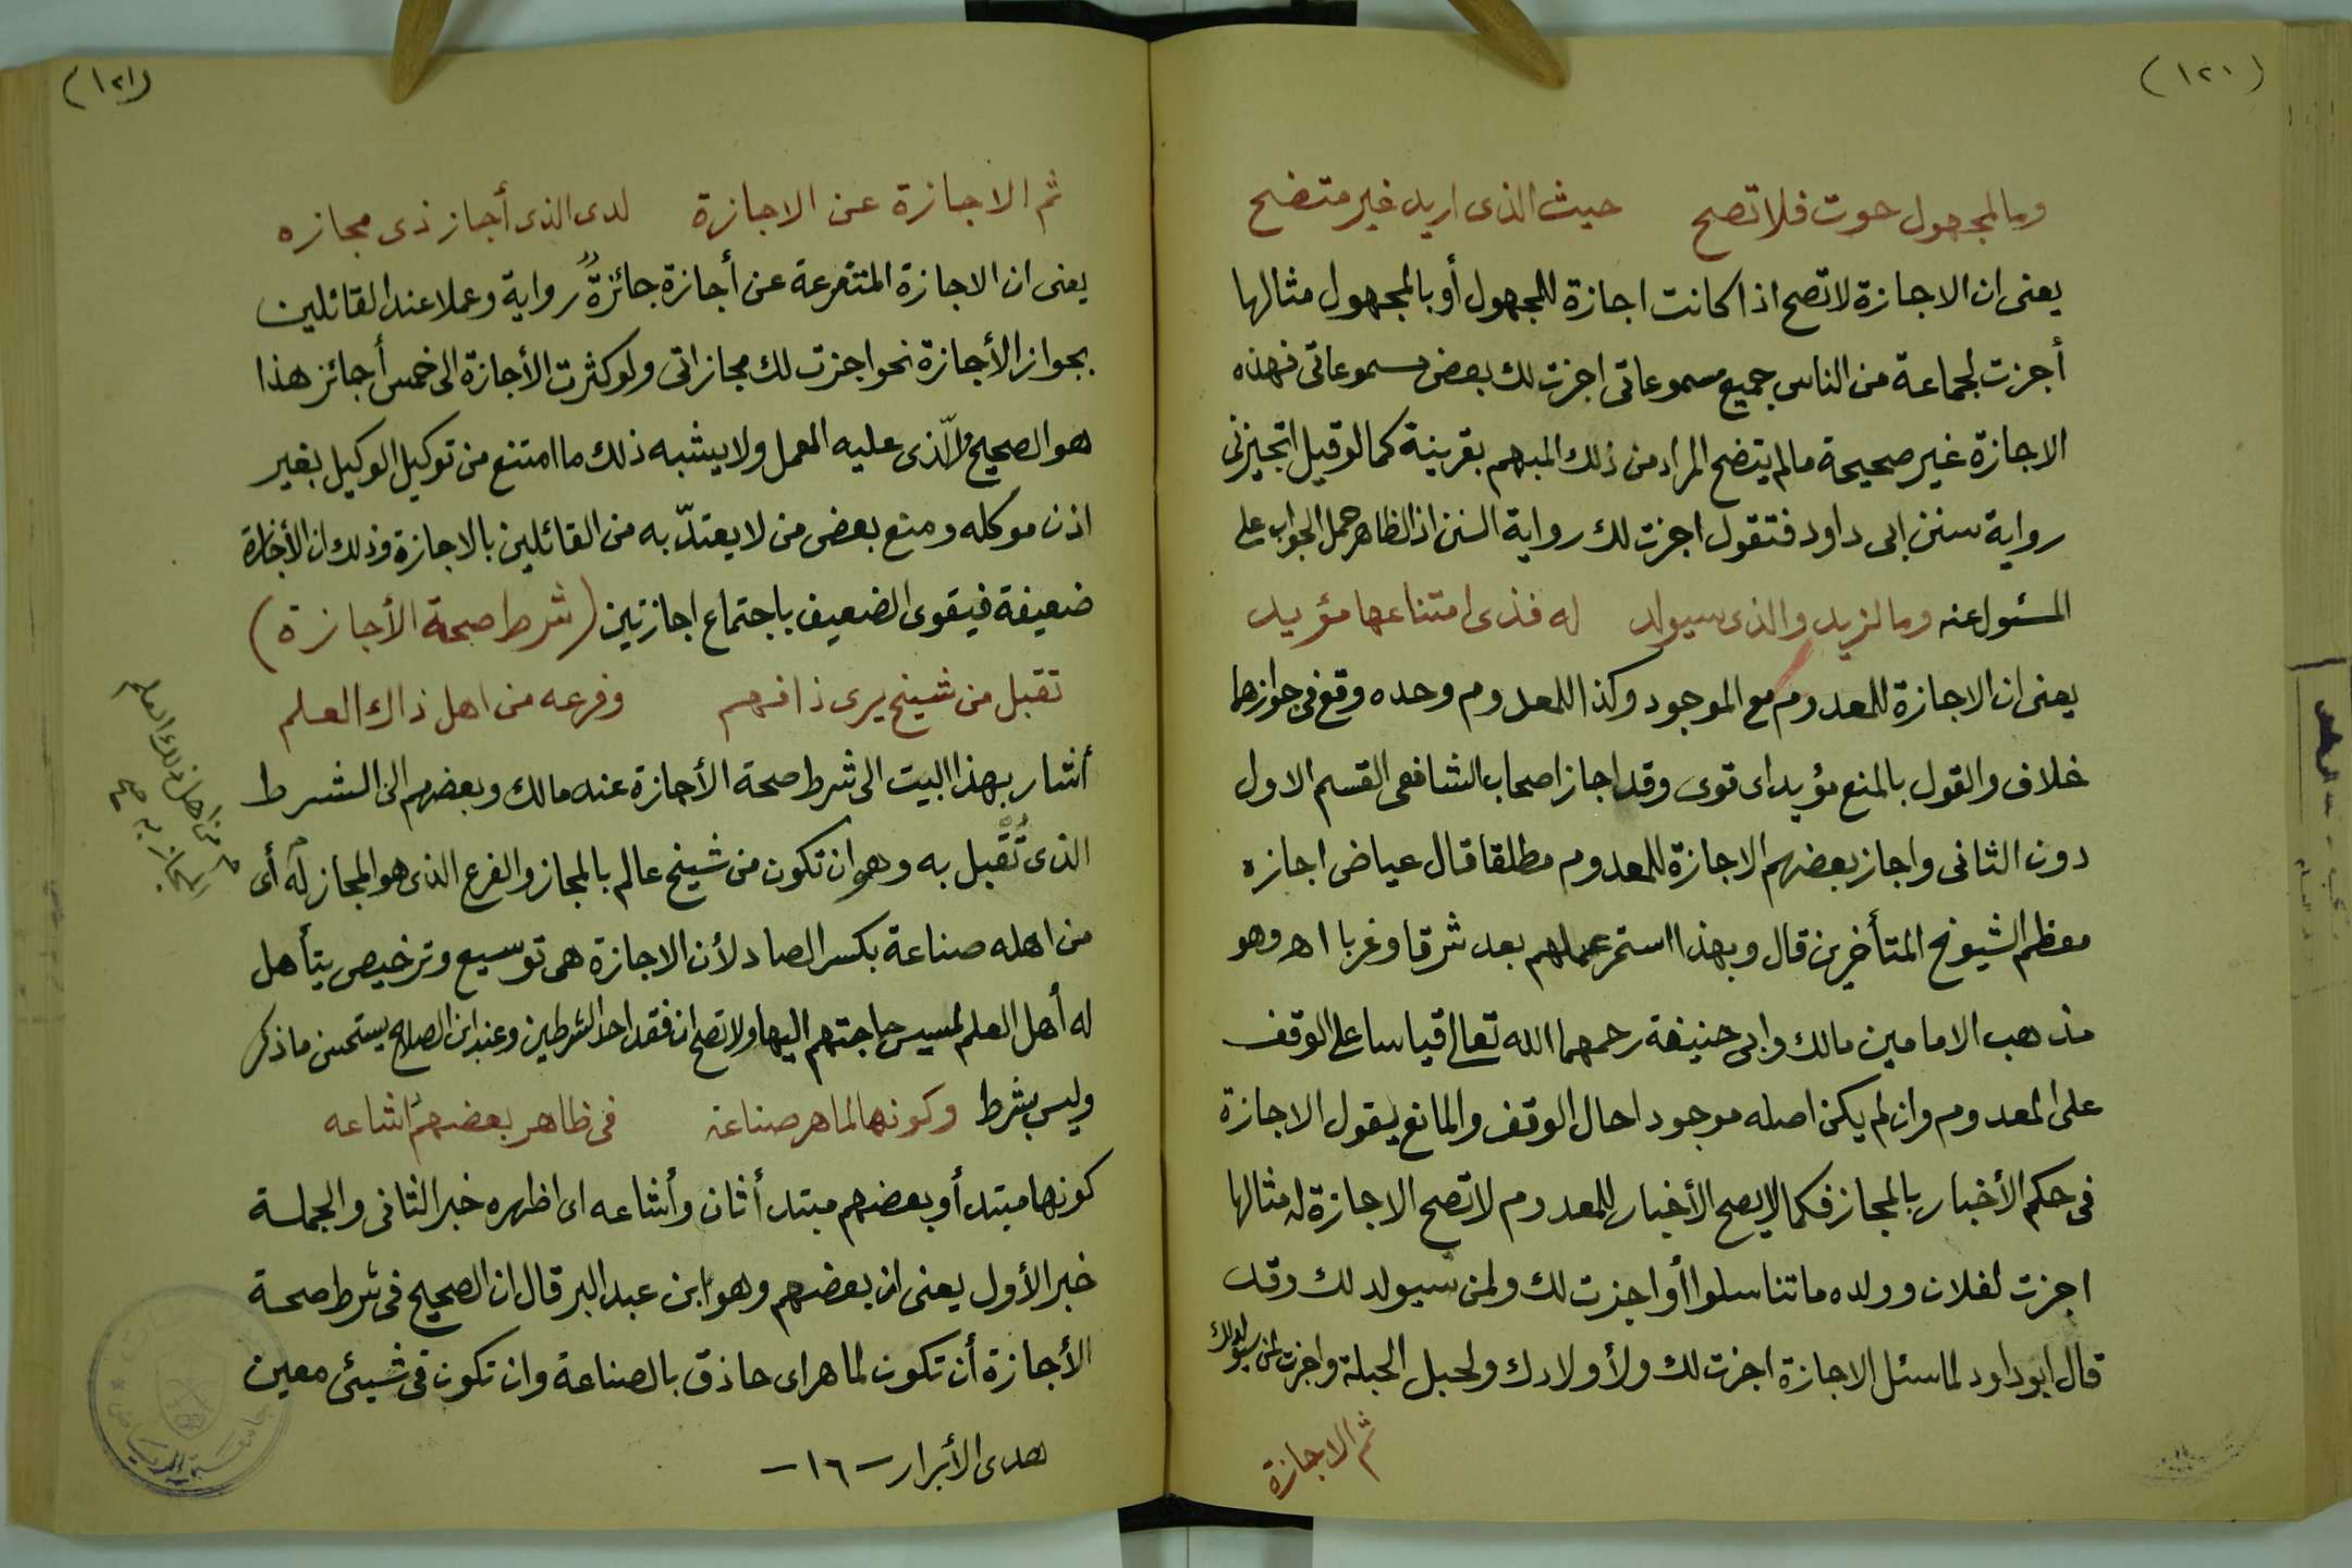 (١٢٠)
وما لمجهول حوت فلا تصح حيث الذى اريد غير متضح
يعنى ان الاجازة لا تصح اذا كانت اجازة للمجهول أو بالمجهول مثالها
أجزت لجماعة من الناس جميع مسموعاتى اجزت لك بعض مسموعاتى فهذه
الاجازة غير صحيحة ما لم يتضح المراد من ذلك المبهم بقرينة كما لو قيل اتجيزنى
رواية سنن ابى داود فتقول اجزت لك رواية السنن اذ الظاهر حمل الجواب على
المسئول عنه وما لزيد والذى سيولد له فذى امتناعها مؤيد
يعنى ان الاجازة للمعدوم مع الموجود وكذا للمعدوم وحده وقع فى جوازها
خلاف والقول بالمنع مؤيد اى قوى وقد اجاز اصحاب الشافعى القسم الاول
دون الثانى واجاز بعضهم الاجازة للمعدوم مطلقا قال عياض اجازه
معظم الشيوخ المتأخرين قال وبهذا استمر عملهم بعد شرقا وغربا اهـ وهو
مذهب الامامين مالك وابى حنيفة رحمهما الله تعالى قياسا على الوقف
على المعدوم وان لم يكن اصله موجودا حال الوقف والمانع يقول الاجازة
فى حكم الأخبار بالمجاز فكما لا يصح الأخبار للمعدوم لا تصح الاجازة له مثالها
اجزت لفلان وولده ما تناسلوا أو اجزت لك ولمن سيولد لك وقد
قال ابو داود لما سئل الاجازة اجزت لك ولأولادك ولحبل الحبلة واجزت لمن سيولد لك
ثم الاجازة
(١٢١)
ثم الاجازة عن الاجازة لدى الذى أجاز ذى مجازه
يعنى ان الاجازة المتفرعة عن أجازة جائزة رواية وعملا عند القائلين
بجواز الأجازة نحو اجزت لك مجازاتى ولو كثرت الأجازة الى خمس أجائز هذا
هو الصحيح والّذى عليه العمل ولا يشبه ذلك ما امتنع من توكيل الوكيل بغير
اذن موكله ومنع بعض من لا يعتدّ به من القائلين بالاجازة وذلك ان الأجازة
ضعيفة فيقوى الضعيف باجتماع اجازتين (شرط صحة الأجازة)
تقبل من شيخ يرى ذا فهم وفرعه من اهل ذاك العلم
أشار بهذا البيت الى شرط صحة الأجازة عند مالك وبعضهم الى الشرط
الذى تُقبل به وهو ان تكون من شيخ عالم بالمجاز والفرع الذى هو المجاز له أى
من اهل ذلك العلم
المجاز به صح
من اهله صناعة بكسر الصاد لأن الاجازة هى توسيع وترخيص يتأهل
له أهل العلم لمسيس حاجتهم اليها ولا تصح ان فقد احد الشرطين وعند ابن الصلاح يستحسن ما ذكر
وليس بشرط وكونها لماهر صناعة فى ظاهر بعضهم اشاعه
كونها مبتدأ وبعضهم مبتدأ ثان وأشاعه اى اظهره خبر الثانى والجملة
خبر الأول يعنى ان بعضهم وهو ابن عبد البر قال ان الصحيح فى شرط صحة
الأجازة أن تكون لماهر اى حاذق بالصناعة وان تكون فى شيئ معين
هدى الأبرار - ١٦ -